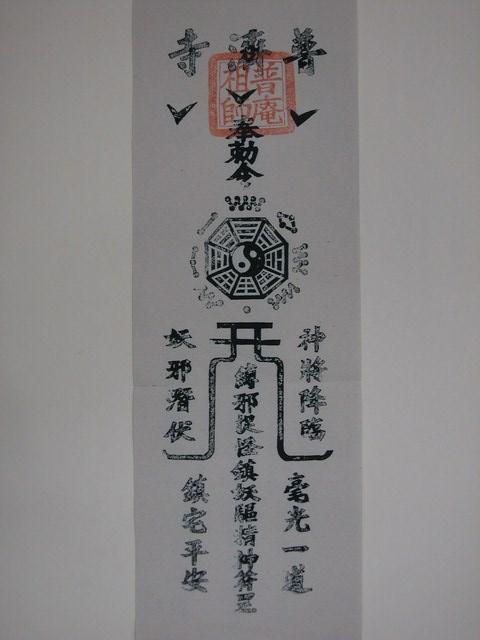 普濟寺
普庵
祖師
奉勅令
神將降臨
毫光一道
縛邪捉怪鎮妖驅精神符至
妖邪潛伏
鎮宅平安